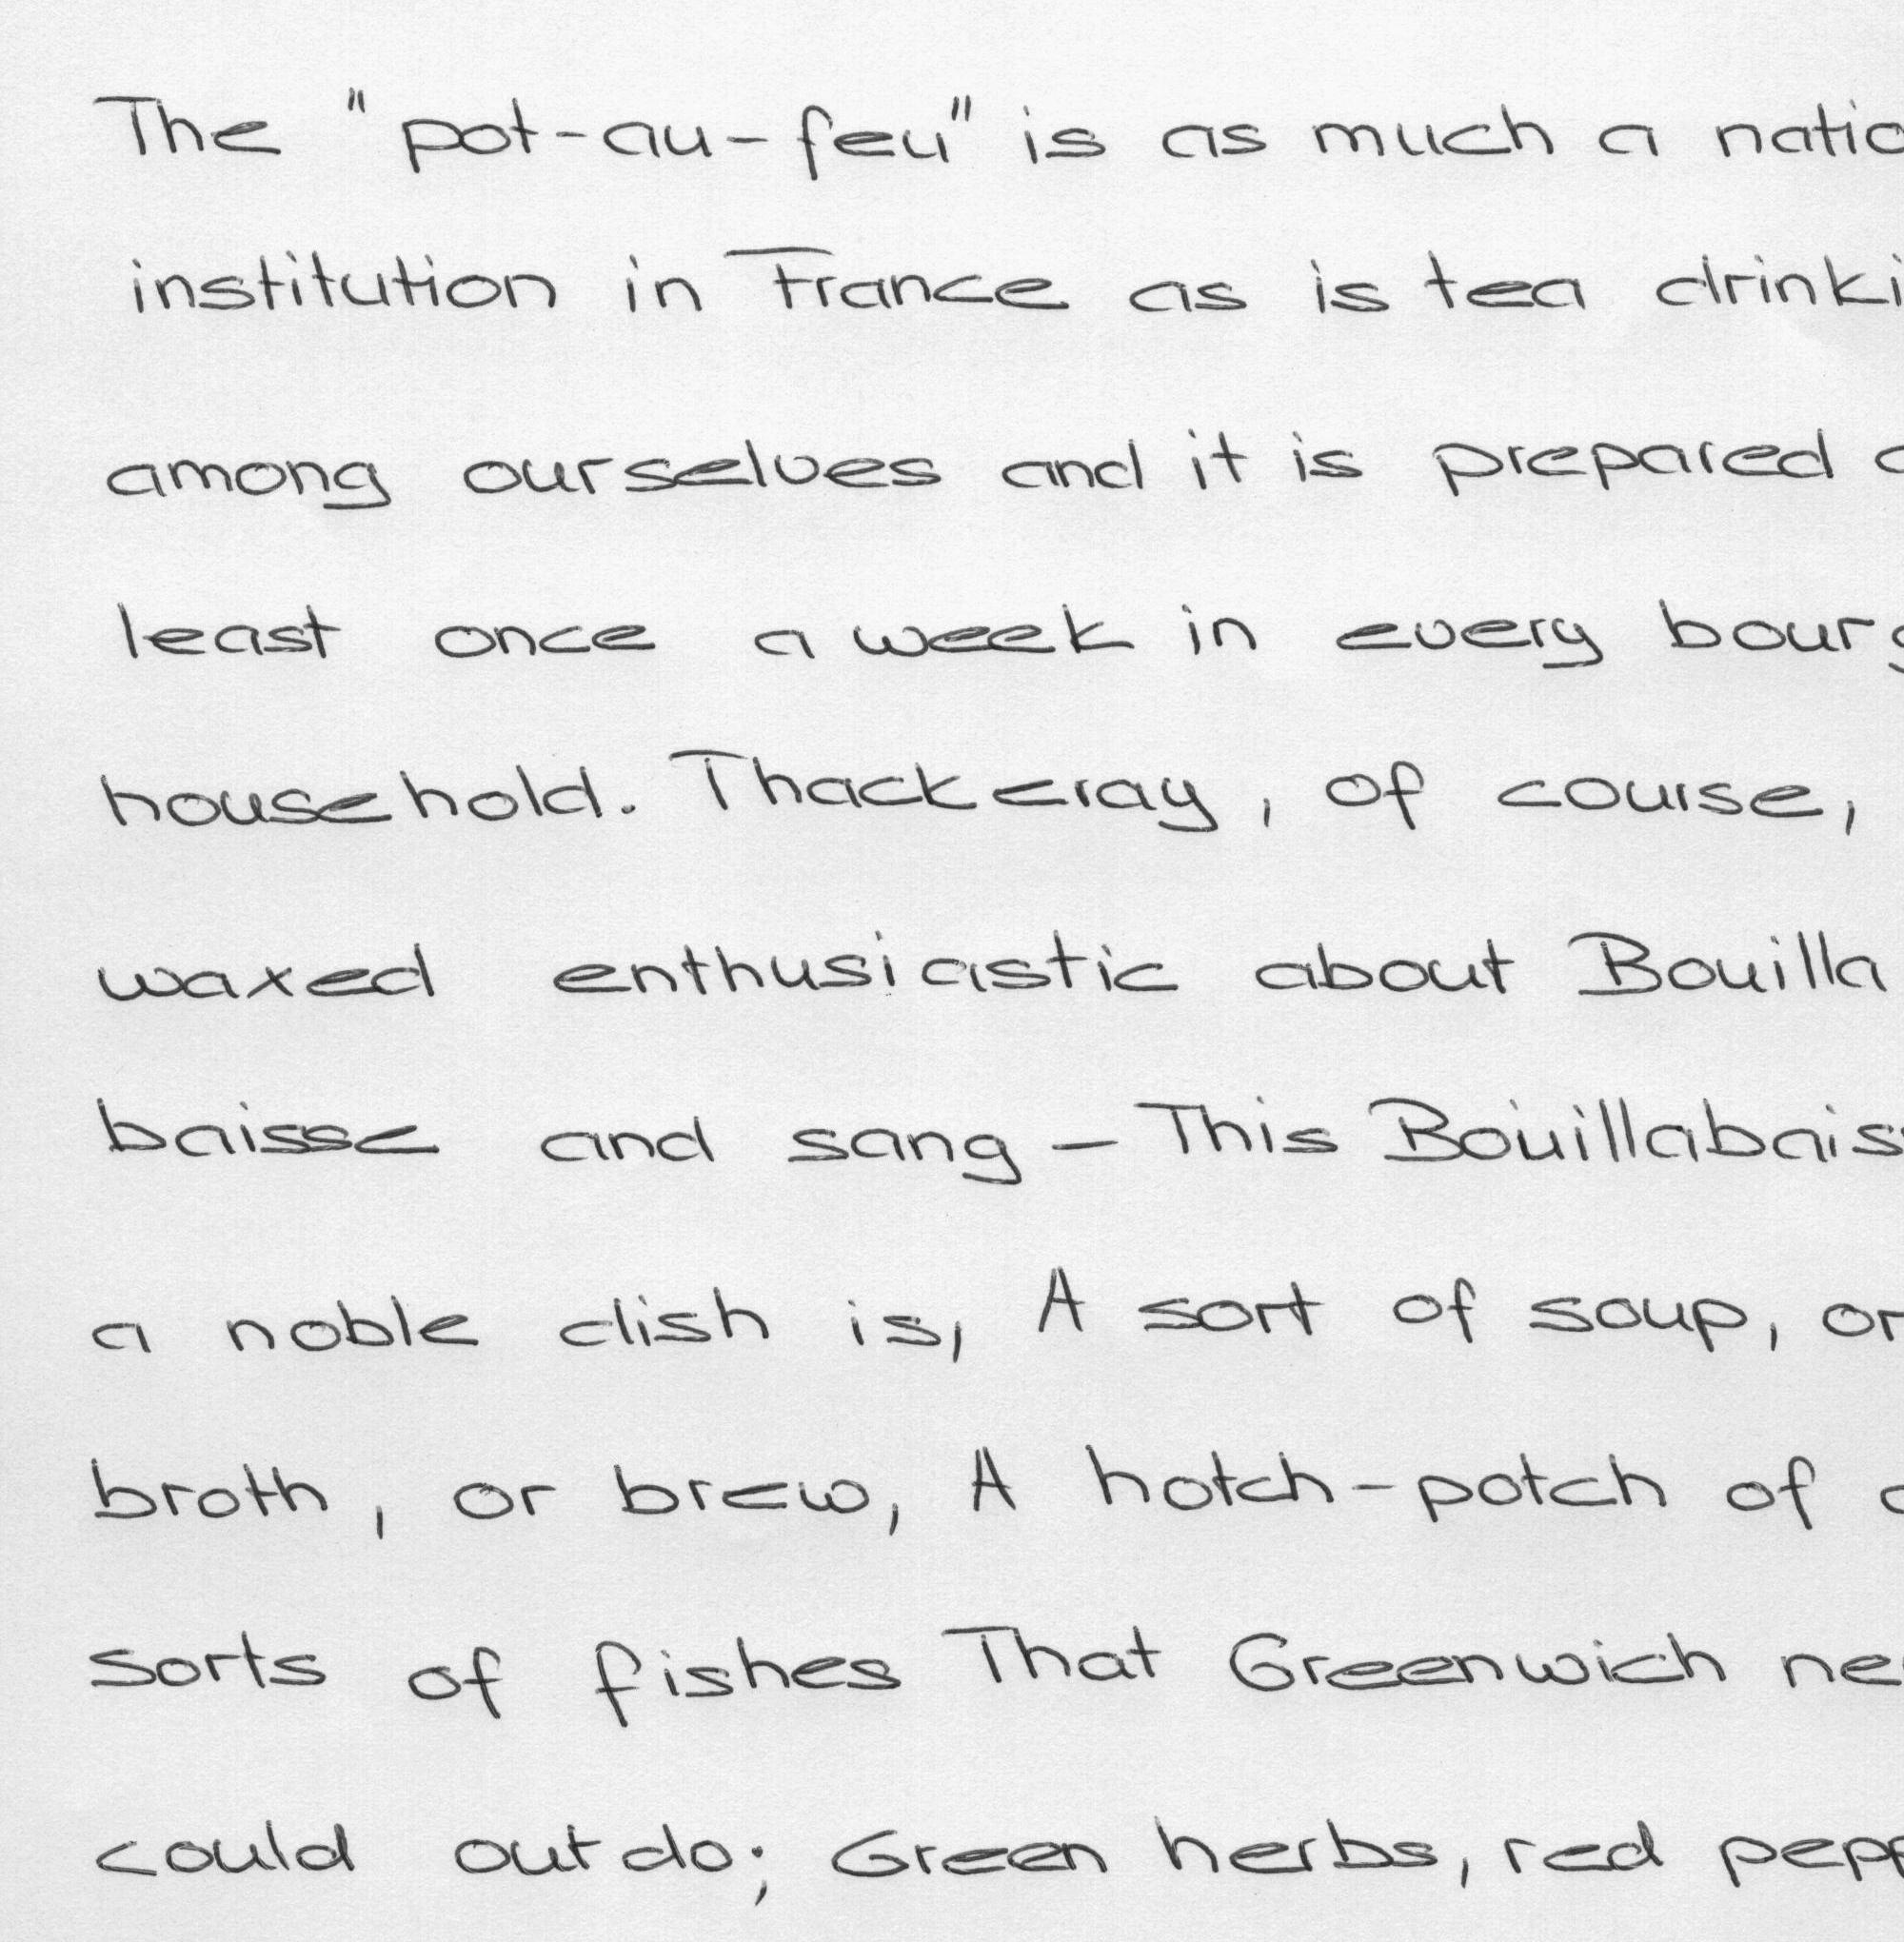 The "pot-au-feu" is as much a natio
institution in France as is tea drinki
among ourselves and it is prepared
least once a week in every bourg
household. Thackeray, of course,
waxed enthusiastic about Bouilla
baisse and sang - This Bouillabaiss
a noble dish is, A sort of soup, or
broth, or brew, A hotch-potch of
sorts of fishes That Greenwich ne
could outdo; Green herbs, red pepp